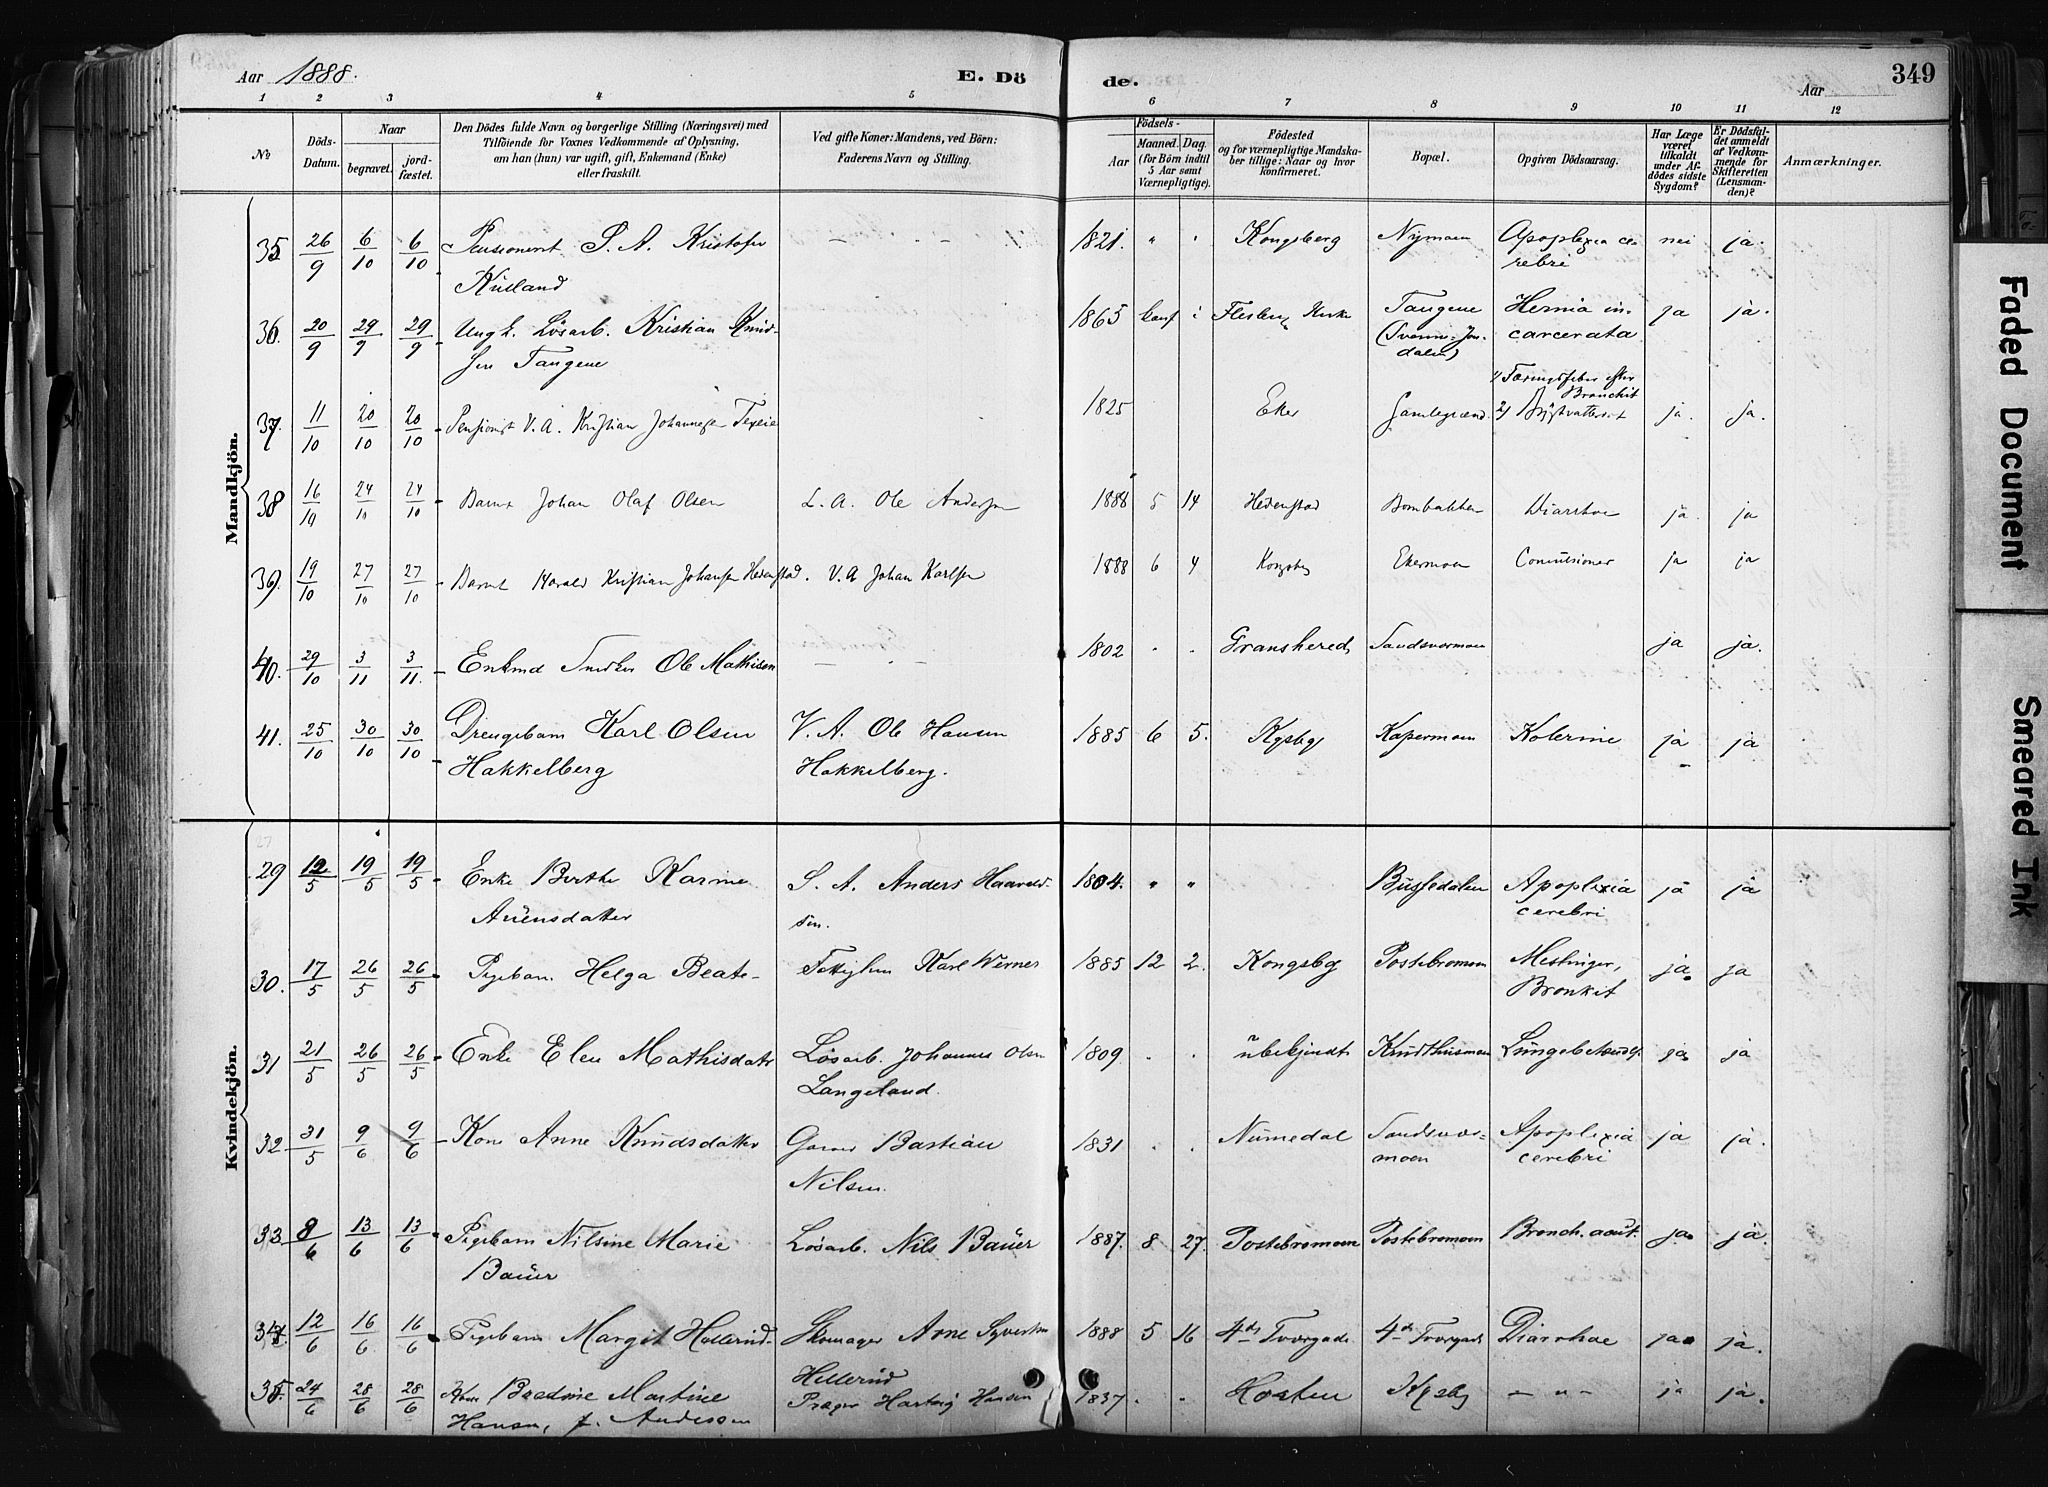 Aar 1888.
E. Dö
de.
349
Aar
1 2 3 4 5 6 7 8 9 10 11 12
No
Döds-
Datum.
Naar
begravet.
jord-
fæstet.
Den Dödes fulde Navn og borgerlige Stilling (Næringsvei) med
Tilföiende for Voxnes Vedkommende af Oplysning,
om han (hun) var ugift, gift, Enkemand (Enke)
eller fraskilt.
Ved gifte Koner: Mandens, ved Börn:
Faderens Navn og Stilling.
Födsels-
Aar
Maaned. Dag.
(for Börn indtil
5 Aar samt
Værnepligtige).
Födested
og for værnepligtige Mandska-
ber tillige: Naar og hvor
konfirmeret.
Bopæl.
Opgiven Dödsaarsag.
Har Læge
været
tilkaldt
under Af-
dödes sidste
Sygdom?
Er Dödsfal-
det anmeldt
af Vedkom-
mende for
Skifteretten
(Lensman-
den)?
Anmærkninger.
Mandkjön.
35 26/9 6/10 6/10 Pensioneret S. A. Kristofer - - - 1821. " " Kongsberg Nymoen Apoplexia ce- nei ja.
Kusland rebri
36 20/9 29/9 29/9 Ungk. Lösarb. Kristian Knud- 1865 Flesberg Kirke Tangene Hernia in- ja ja.
sen Tangene carcerata
37. 11/10 20/10 20/10 Pensionist V. A. Kristian Johannesen 1825 Eker Gamlegrænd. 1) Tæringsfeber efter Bronchit ja. ja.
2)
38 16/10 24/10 24/10 Barnet Johan Olaf Olsen L. A. Ole Andersen 1888 5 14 Hedenstad Bombakken Diarrhoe ja. ja
39. 19/10 27/10 27/10 Barnet Harald Kristian Johansen Hedenstad. V. A Johan Karlsen 1888 6 4 Kongsbg Ekermoen Convulsioner ja ja
40. 29/10 3/11 3/11. Enkmd Snedker Ole Mathisen - - - 1802 . . Gransherred Sandsvermoen ja ja.
41. 25/10 30/10 30/10 Drengebarn Karl Olsen V. A. Ole Hansen 1885 6 5. Kgsbg Kapermoen Kolerine ja ja
Hakkelberg Hakkelberg.
Kvindekjön.
27
29 12/5 19/5 19/5 Enke Berthe Karine S. A. Anders Haavald- 1804. " " Bussedalen Apoplexia ja ja
Auensdatter sen. cerebri
30. 17/5 26/5 26/5 Pigebarn Helga Beate- Karl Werner 1885 12 2. Kongsbg Postebromoen Meslinger, ja. ja
Bronkit
31 21/5 26/5 26/5 Enke Elen Mathisdatr Lösarb. Johannes Olsen 1809 . . ubekjendt Krudthusmoen Lungebetændelse ja ja
Langeland.
32 31/5 9/6 9/6 Kone Anne Knudsdatter Garver Bastian 1831 . . Numedal Sandsvær- Apoplexia ja ja.
Nilsen. moen cerebri
33. 8/6 13/6 13/6 Pigebarn Nilsine Marie Lösarb. Nils Bauer 1887. 8 27. Postebromoen Postebromoen Bronch. acut. ja. ja.
Bauer
34. 12/6 16/6 16/6 Pigebarn Margit Hellerud- Skomager Arne Syversen 1888 5 16 4de Tvergade 4de Tvergade Diarrhoe ja. ja.
Hellerud
35. 24/6 28/6 28/6 Kone Bredine Martine Præger Hartvig Hansen 1837 . . Horten Kgsbg - " - ja ja.
Hansen, f. Andersen
Faded Document
Smeared Ink